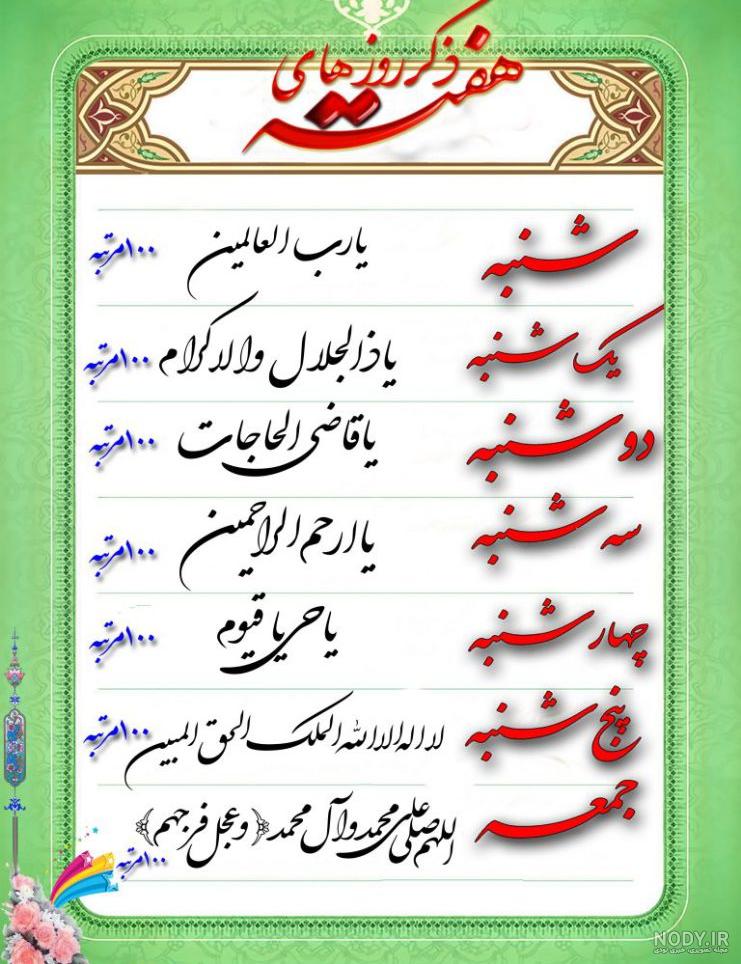 ذکر روزهای
هفته
شنبه یارب العالمین ۱۰۰مرتبه
یک شنبه یاذالجلال والاکرام ۱۰۰مرتبه
دو شنبه یاقاضی الحاجات ۱۰۰مرتبه
سه شنبه یاارحم الراحمین ۱۰۰مرتبه
چهار شنبه یاحی یا قیوم ۱۰۰مرتبه
پنج شنبه لااله الاالله الملک الحق المبین ۱۰۰مرتبه
جمعه اللهم صلی علی محمد وآل محمد ﴿وعجل فرجهم﴾ ۱۰۰مرتبه
NODY.IR
مجله تصویری، خبری نودی